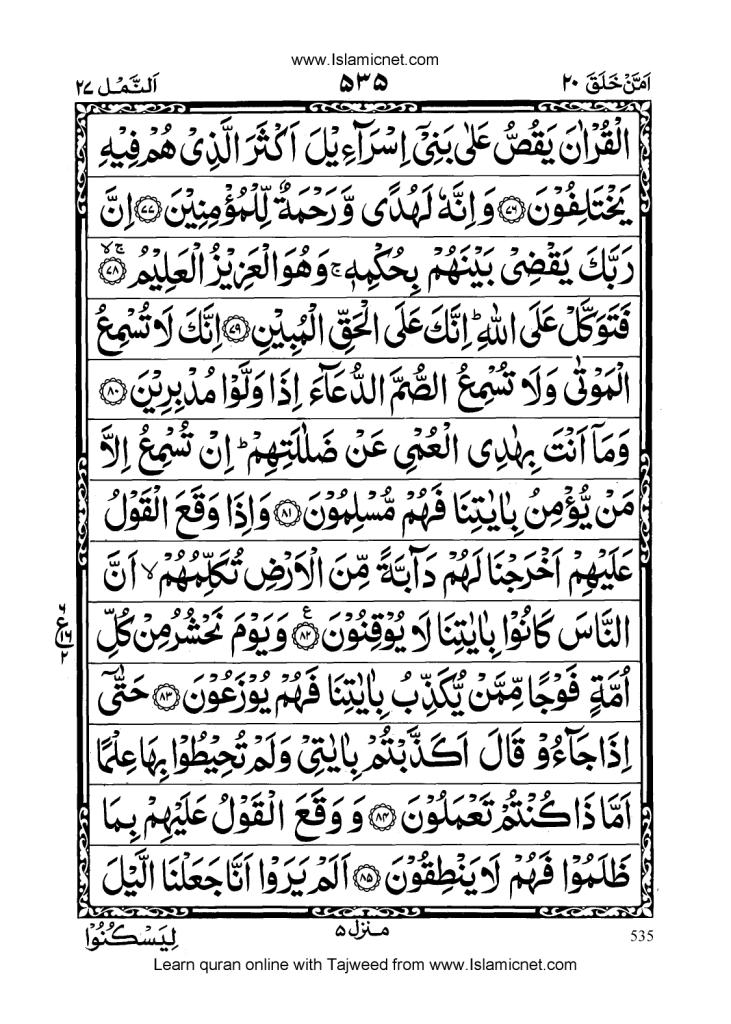 www.Islamicnet.com
اَمَّنْ خَلَقَ ۲۰
۵۳۵
اَلنَّمْل ۲۷
الْقُرْاٰنَ يَقُصُّ عَلٰى بَنِىْٓ اِسْرَآءِيْلَ اَكْثَرَ الَّذِىْ هُمْ فِيْهِ
يَخْتَلِفُوْنَ ﴿۷۶﴾ وَ اِنَّهٗ لَهُدًى وَّ رَحْمَةٌ لِّلْمُؤْمِنِيْنَ ﴿۷۷﴾ اِنَّ
رَبَّكَ يَقْضِىْ بَيْنَهُمْ بِحُكْمِهٖ ۚ وَهُوَ الْعَزِيْزُ الْعَلِيْمُ ﴿۷۸﴾ ۙۚ
فَتَوَكَّلْ عَلَى اللّٰهِ ؕ اِنَّكَ عَلَى الْحَقِّ الْمُبِيْنِ ﴿۷۹﴾ اِنَّكَ لَا تُسْمِعُ
الْمَوْتٰى وَلَا تُسْمِعُ الصُّمَّ الدُّعَآءَ اِذَا وَلَّوْا مُدْبِرِيْنَ ﴿۸۰﴾
وَمَاۤ اَنْتَ بِهٰدِى الْعُمْىِ عَنْ ضَلٰلَتِهِمْ ؕ اِنْ تُسْمِعُ اِلَّا
مَنْ يُّؤْمِنُ بِاٰيٰتِنَا فَهُمْ مُّسْلِمُوْنَ ﴿۸۱﴾ وَاِذَا وَقَعَ الْقَوْلُ
عَلَيْهِمْ اَخْرَجْنَا لَهُمْ دَآبَّةً مِّنَ الْاَرْضِ تُكَلِّمُهُمْ ۙ اَنَّ
النَّاسَ كَانُوْا بِاٰيٰتِنَا لَا يُوْقِنُوْنَ ﴿۸۲﴾ ع وَيَوْمَ نَحْشُرُ مِنْ كُلِّ
اُمَّةٍ فَوْجًا مِّمَّنْ يُّكَذِّبُ بِاٰيٰتِنَا فَهُمْ يُوْزَعُوْنَ ﴿۸۳﴾ حَتّٰىٓ
اِذَا جَآءُوْ قَالَ اَكَذَّبْتُمْ بِاٰيٰتِىْ وَلَمْ تُحِيْطُوْا بِهَا عِلْمًا
اَمَّا ذَا كُنْتُمْ تَعْمَلُوْنَ ﴿۸۴﴾ وَ وَقَعَ الْقَوْلُ عَلَيْهِمْ بِمَا
ظَلَمُوْا فَهُمْ لَا يَنْطِقُوْنَ ﴿۸۵﴾ اَلَمْ يَرَوْا اَنَّا جَعَلْنَا الَّيْلَ
535
منزل ۵
لِيَسْكُنُوْا
Learn quran online with Tajweed from www.Islamicnet.com